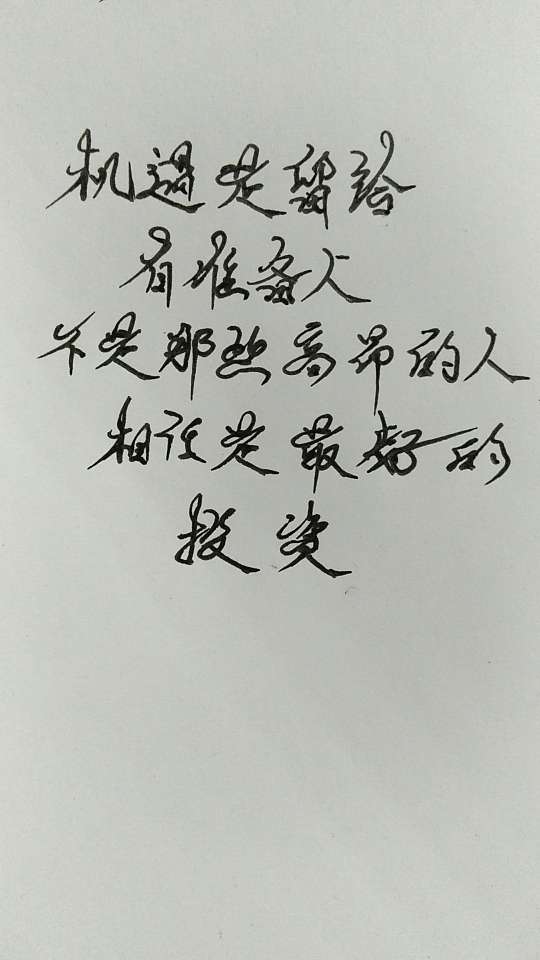 机遇是留给
有准备人
不是那些高昂的人
相任是最好的
投资